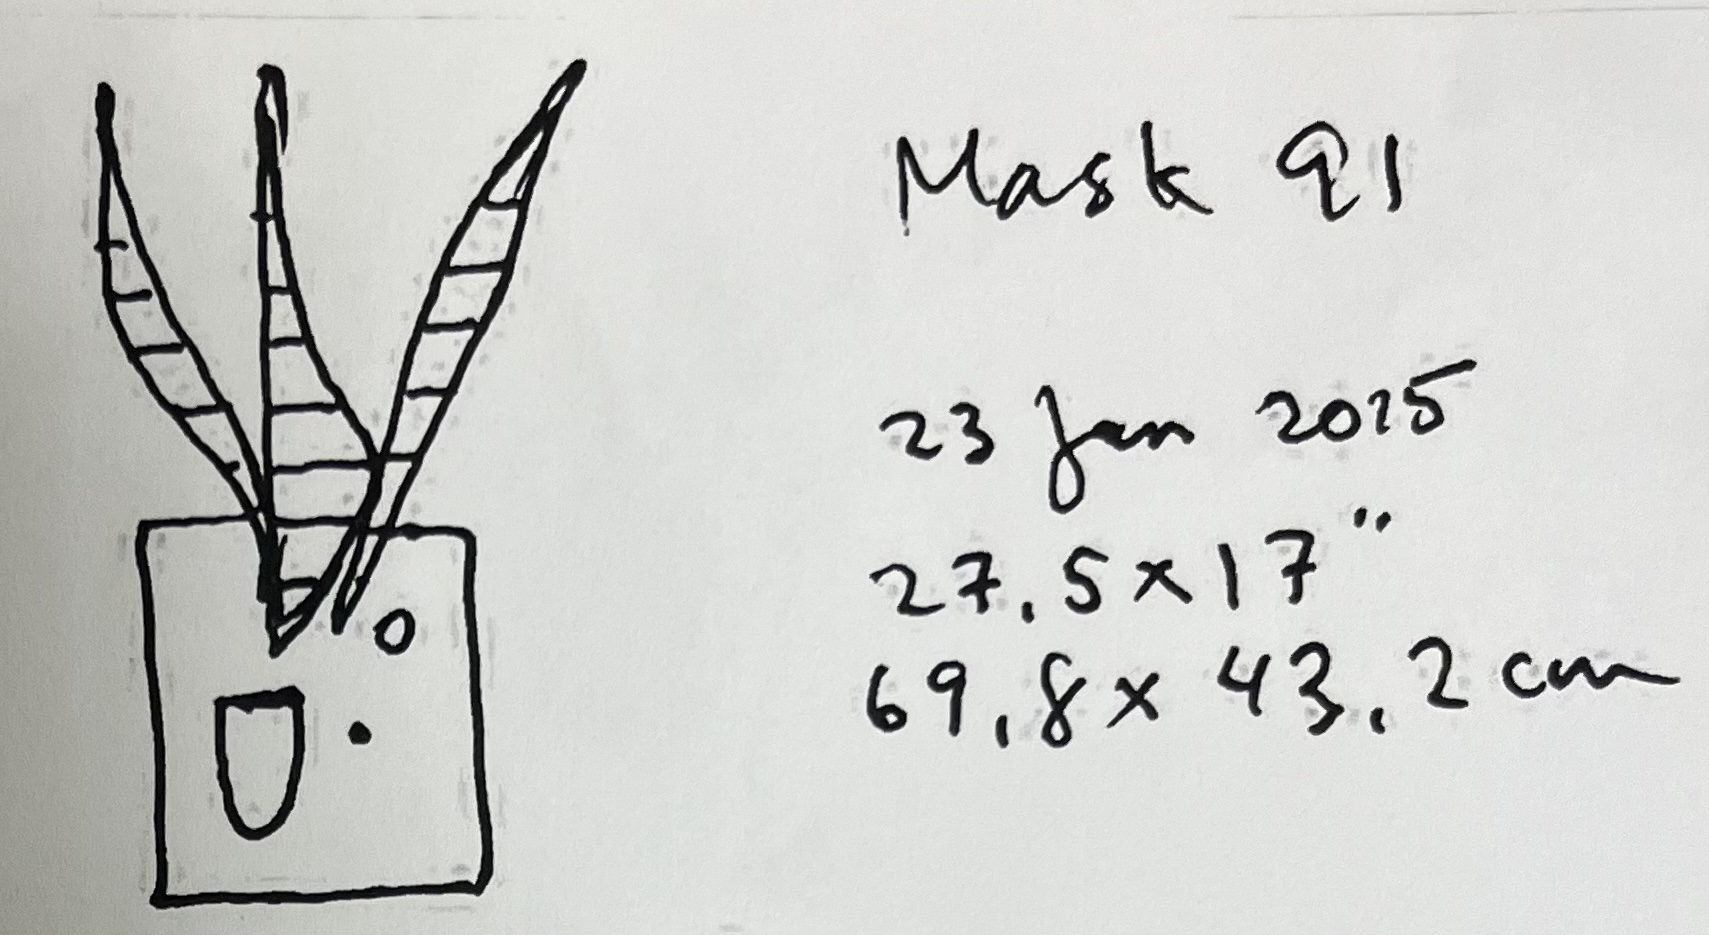 Mask 91
23 Jan 2025
27.5x17"
69.8x43.2 cm